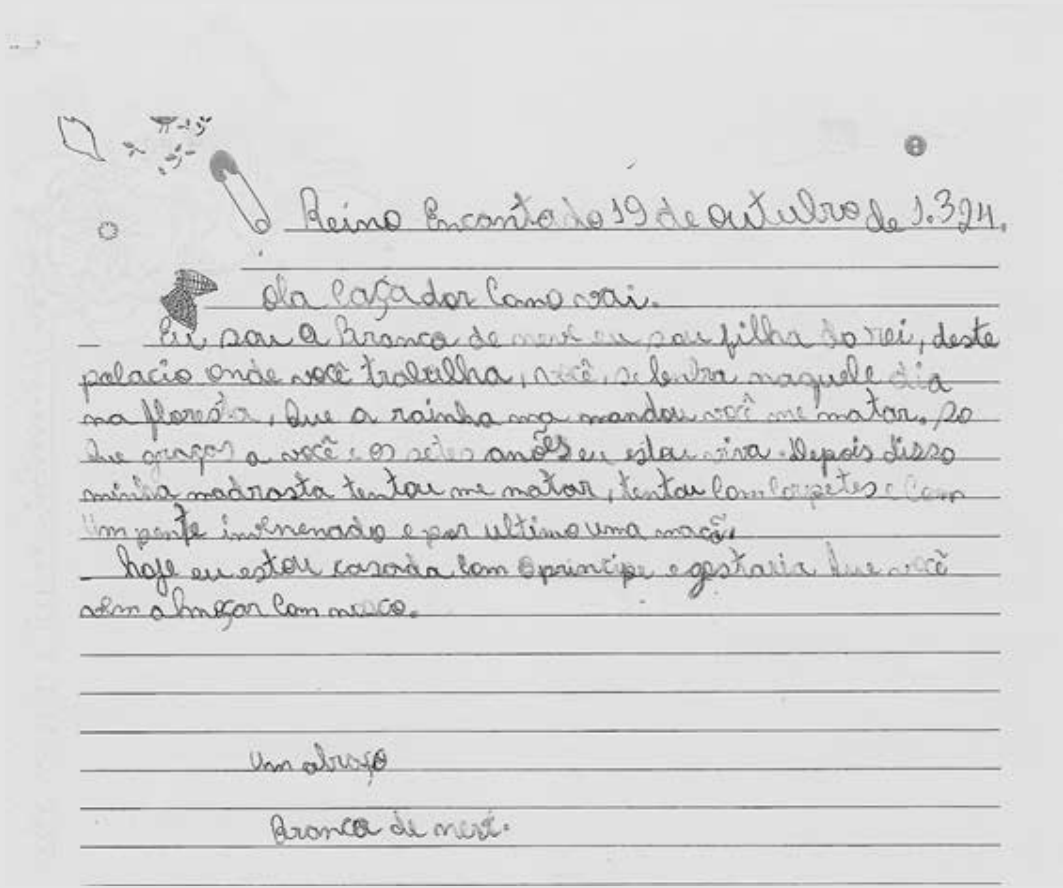 Reino Encantado 19 de outubro de 1.324.
ola Caçador Como vai.
Eu sou a Branca de neve eu sou filha do rei, deste
palacio onde você trabalha, você, se lembra naquele dia
na floresta, que a rainha ma mandou você me matar. so
que graças a você e os setes anões eu estou viva. Depois disso
minha madrasta tentou me matar, tentou com corpetes e com
um pente invenenado e por ultimo uma maçã.
hoje eu estou casada com o principe e gostaria que você
vem almoçar com nosco.
Um abraço
Branca de neve.